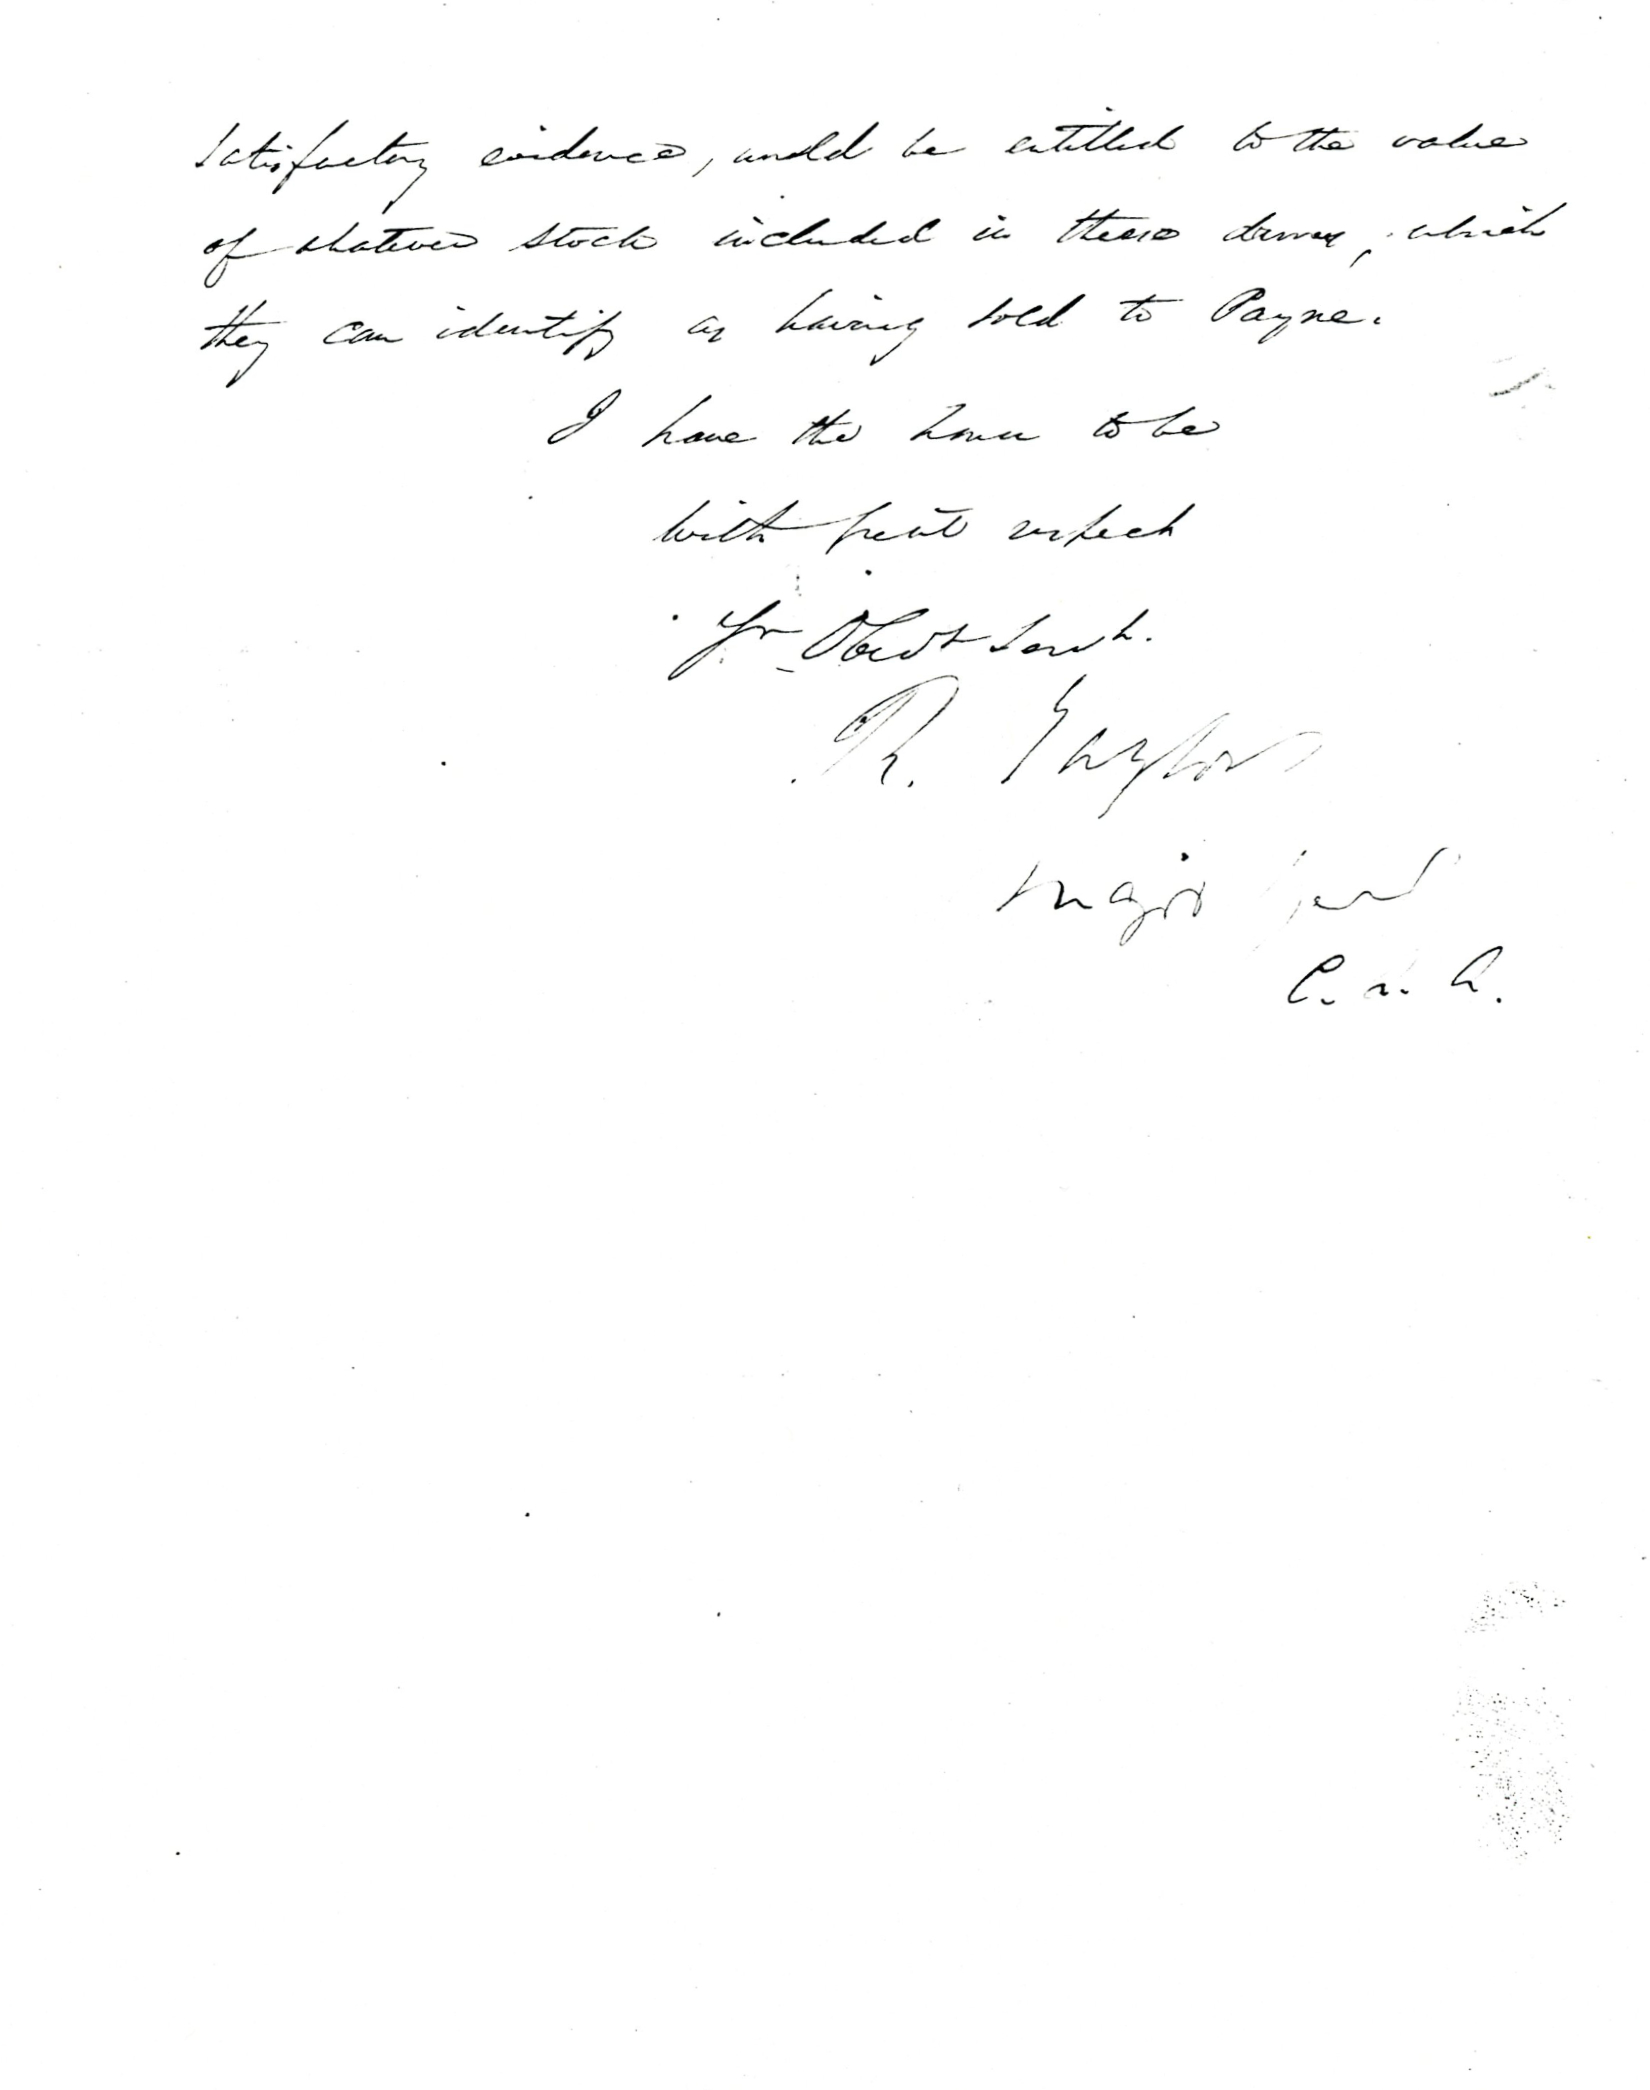 satisfactory evidence, would be entitled to the value
of whatever stock included in these droves, which
they can identify as having sold to Payne.
I have the honor to be
with great respect
Yr Obedt Servt.
R. Taylor
Major Genl
C. S. A.